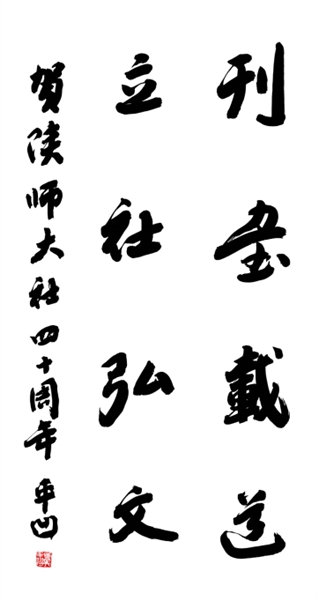 刊書載道
立社弘文
賀陕师大社四十周年 平凹